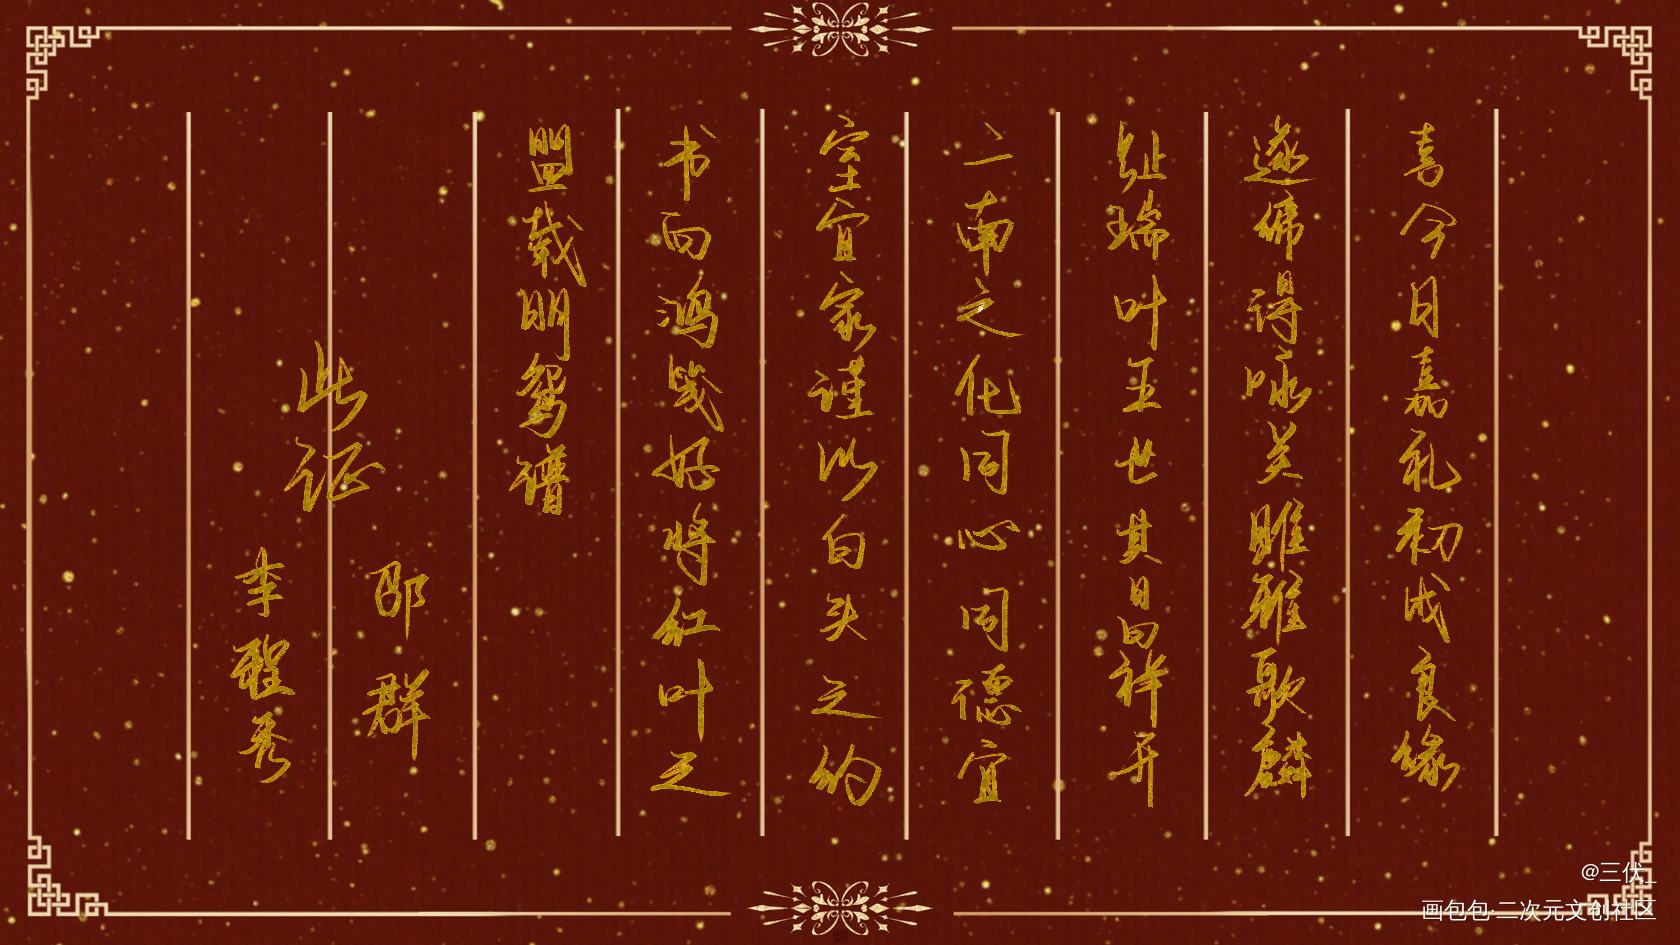 喜今日嘉礼初成良缘
遂缔得咏关雎雅歌麟
趾瑞叶五世其昌祥开
二南之化同心同德宜
室宜家谨以白头之约
书向鸿笺好将红叶之
盟载明鸳谱
此证
邵群
李程秀
@三伏_
画包包·二次元文创社区